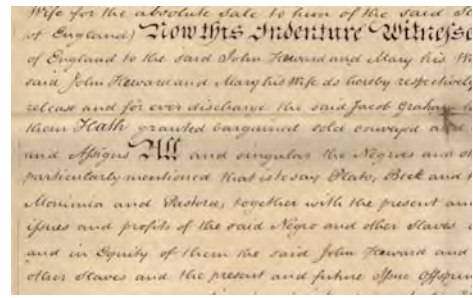 Wife for the absolute Sale to him of the said
of England) Now this Indenture Witnesse
of England to the said John Heward and Mary his W
said John Heward and Mary his Wife do hereby respectively
release and for ever discharge the said Jacob Graham
them Hath granted bargained sold conveyed
and Assigns All and singular the Negroes and ot
particularly mentioned that is to say Plato, Beck and
Monimia and Pastora, together with the present an
issues and profits of the said Negro and other Slaves
and in Equity of them the said John Heward and
other Slaves and the present and future Issue Offsprin